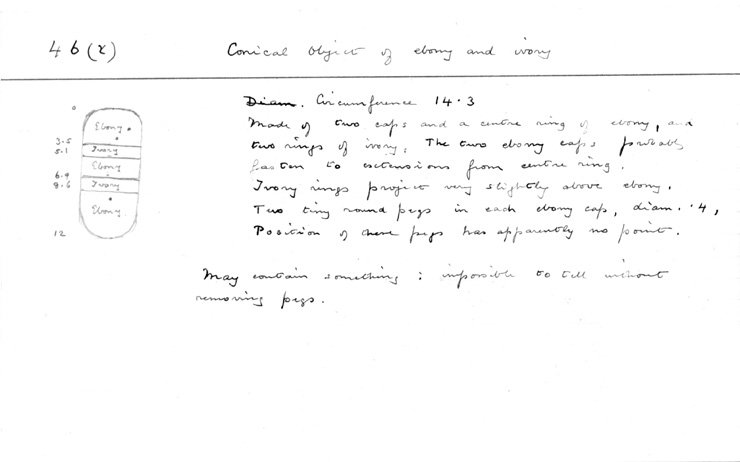 46(r)
Conical Object of ebony and ivory
Diam. Circumference 14.3
Made of two caps and a centre ring of ebony, and
two rings of ivory. The two ebony caps probably
fasten to extensions from centre ring.
Ivory rings project very slightly above ebony.
Two tiny round pegs in each ebony cap, diam. .4,
Position of these pegs has apparently no point.
May contain something : impossible to tell without
removing pegs.
0
Ebony
3.5
Ivory
5.1
Ebony
6.9
Ivory
8.6
Ebony
12